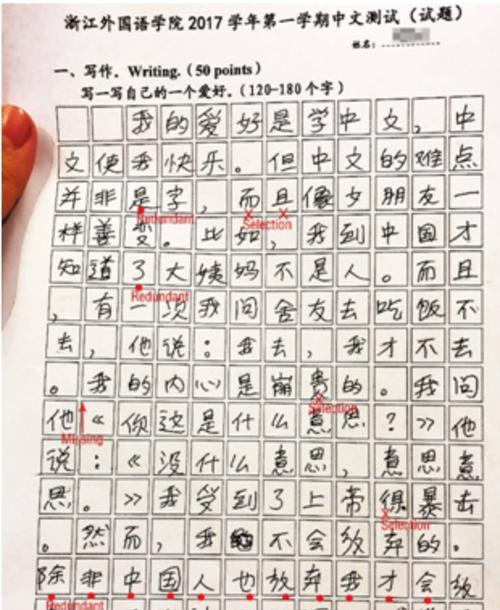 浙江外国语学院 2017 学年第一学期中文测试（试题）
姓名：
一、写作。Writing.（50 points）
写一写自己的一个爱好。（120-180 个字）
我的爱好是学中文，中
文使我快乐。但中文的难点
并非是字，而且像女朋友一
Redundant Selection
样善变。比如，我到中国才
知道了大姨妈不是人。而且
Redundant
，有一次我问舍友去吃饭不
去，他说：我去，我才不去
。我的内心是崩贵的。我问
Selection
他《你这是什么意思？》他
Missing
说：《没什么意思，意思意
思。》我受到了上帝得暴击
Selection
。然而，我不会放弃的。
除非中国人也放弃我才会放
Redundant